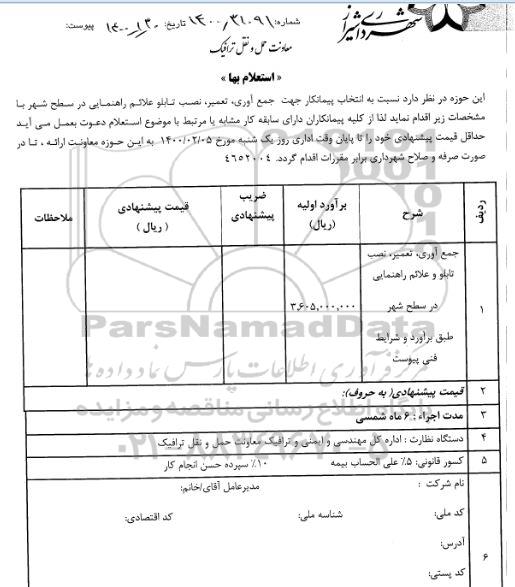 شهرداری شیراز
شماره: ۱۴۰۰/۳۱۰۹۱ تاریخ: ۱۴۰۰/۱/۳۰ پیوست:
معاونت حمل و نقل ترافیک
« استعلام بها »
این حوزه در نظر دارد نسبت به انتخاب پیمانکار جهت جمع آوری، تعمیر، نصب تابلو علائم راهنمایی در سطح شهر با
مشخصات زیر اقدام نماید لذا از کلیه پیمانکاران دارای سابقه کار مشابه یا مرتبط با موضوع استعلام دعوت بعمل می آید
حداقل قیمت پیشنهادی خود را تا پایان وقت اداری روز یک شنبه مورخ ۱۴۰۰/۰۲/۰۵ به این حوزه معاونت ارائه ، تا در
صورت صرفه و صلاح شهرداری برابر مقررات اقدام گردد. ۴۶۵۲۰۰۴
ردیف شرح برآورد اولیه (ریال) ضریب پیشنهادی قیمت پیشنهادی (ریال) ملاحظات
۱ جمع آوری، تعمیر، نصب
تابلو و علائم راهنمایی
در سطح شهر ۳,۶۰۵,۰۰۰,۰۰۰
طبق برآورد و شرایط
فنی پیوست
۲ قیمت پیشنهادی( به حروف):
۳ مدت اجراء : ۶ ماه شمسی
۴ دستگاه نظارت : اداره کل مهندسی و ایمنی و ترافیک معاونت حمل و نقل ترافیک
۵ کسور قانونی: ۵٪ علی الحساب بیمه ۱۰٪ سپرده حسن انجام کار
۶ نام شرکت : مدیرعامل آقای/خانم:
کد ملی: شناسه ملی: کد اقتصادی:
آدرس:
کد پستی:
ParsNamadData
مرکز فرآوری اطلاعات پارس نماد داده ها
پایگاه اطلاع رسانی مناقصه و مزایده
۰۲۱-۸۸۳۴۹۶۷۰-۵